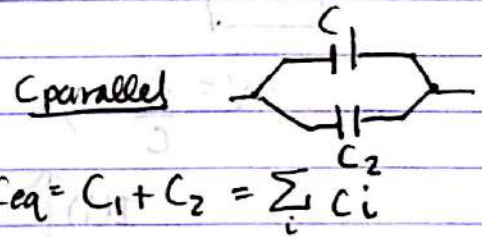 C
C parallel
C₂
Ceq = C₁ + C₂ = ∑ᵢ Ci